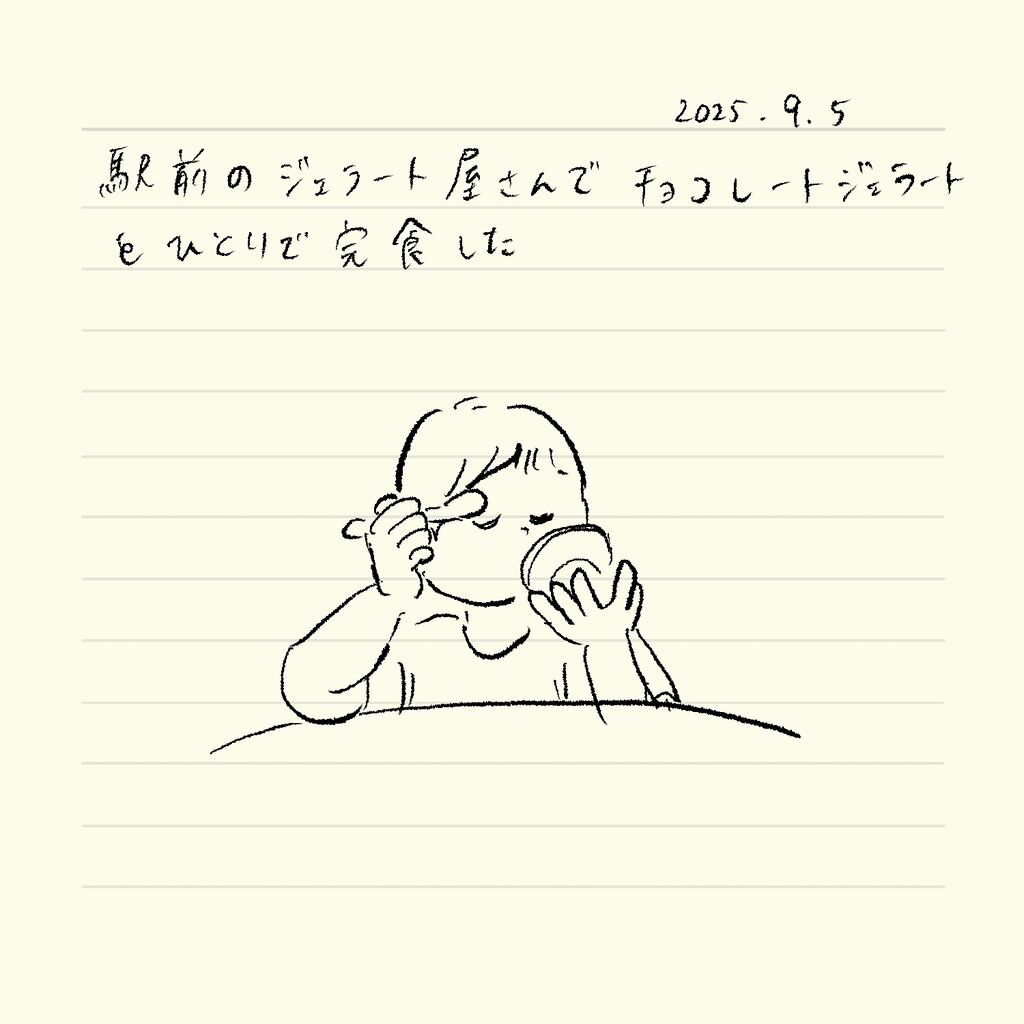 2025.9.5
駅前のジェラート屋さんでチョコレートジェラート
をひとりで完食した